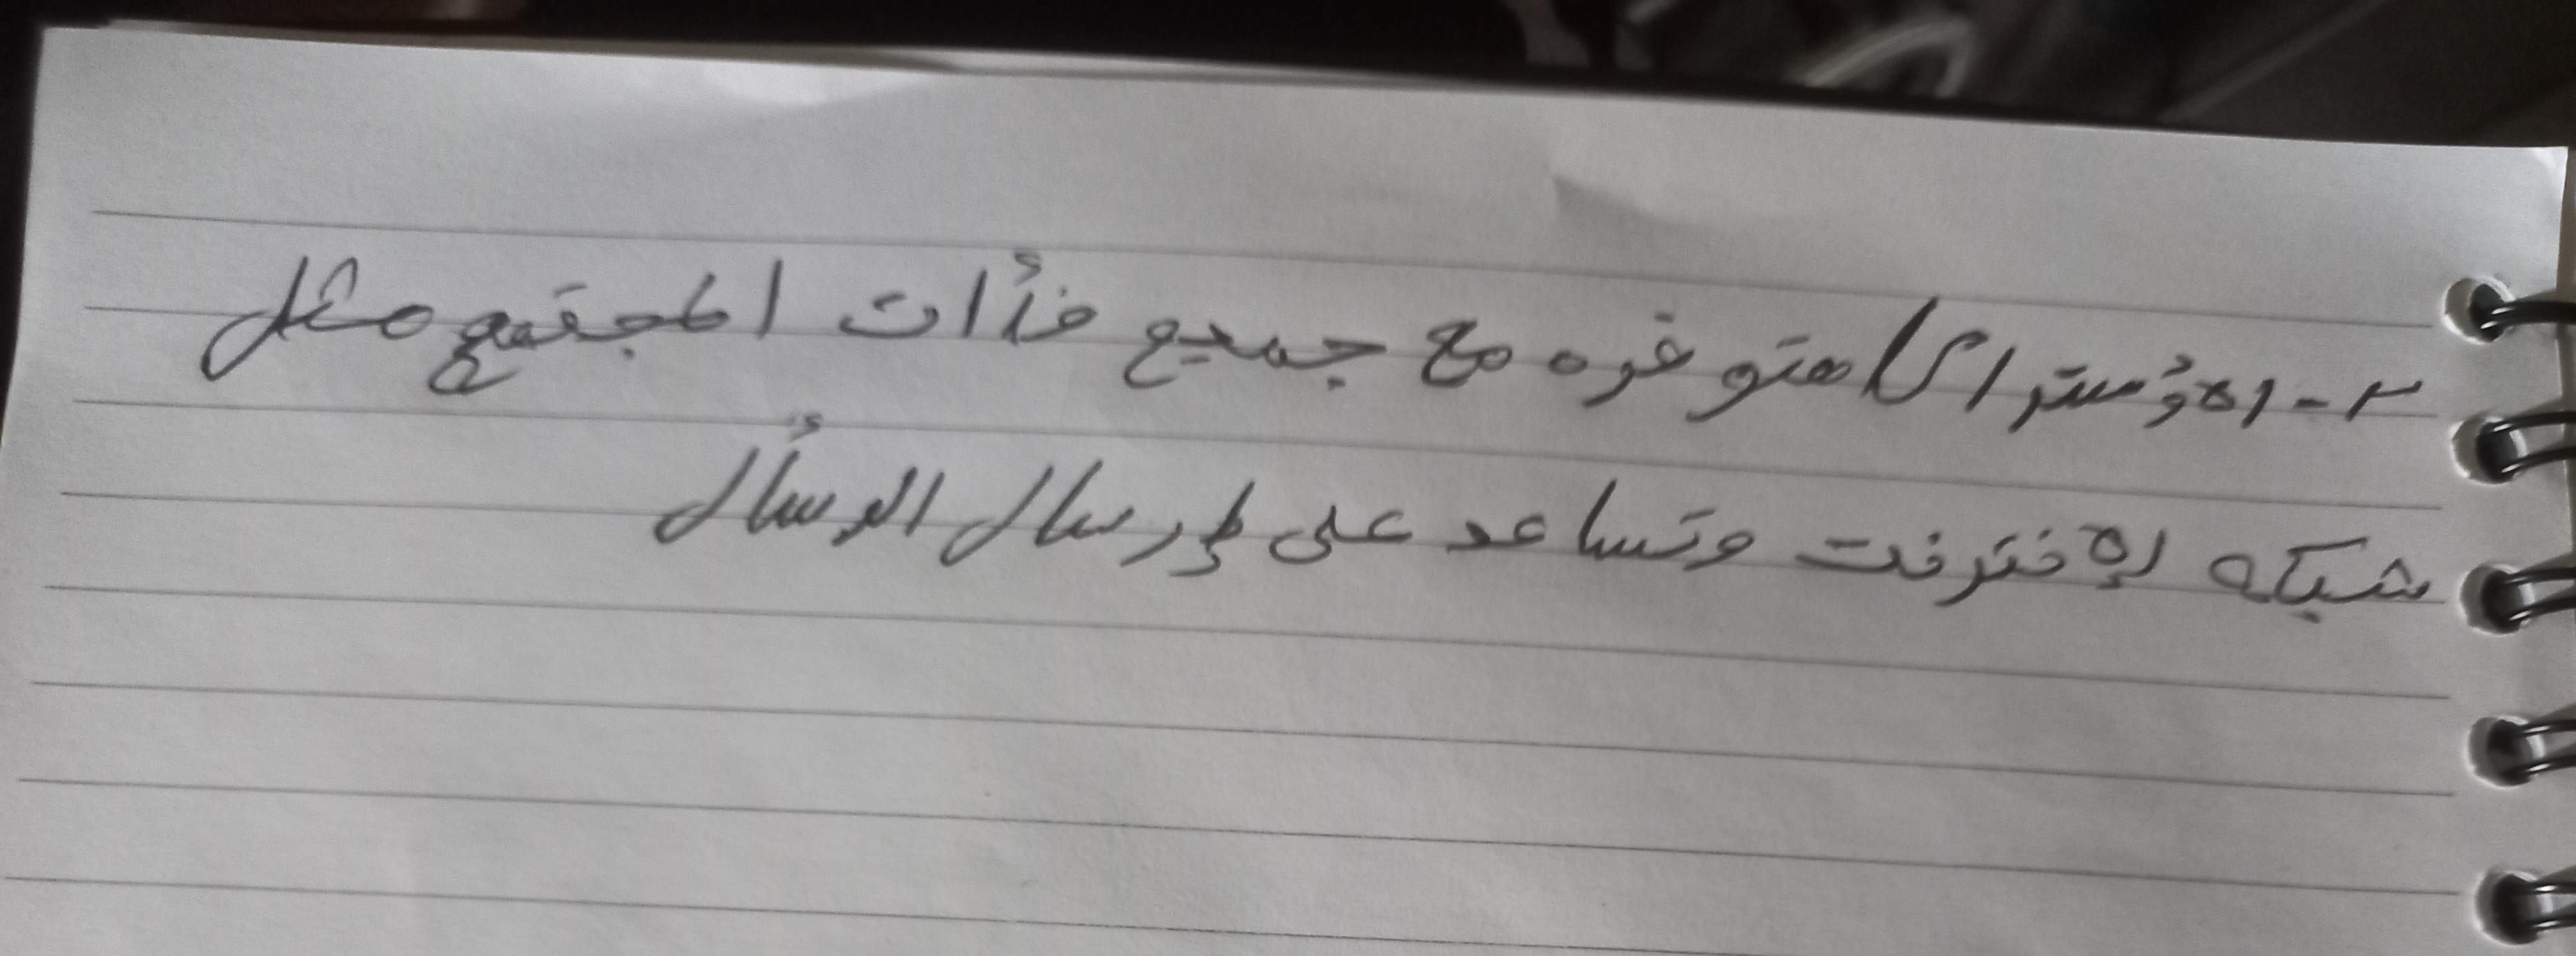 ٢- الاؤستراك متوفره مع جميع فأات المجتمع مثل
شبكه الإنترنت وتساعد على إرسال الرسأل